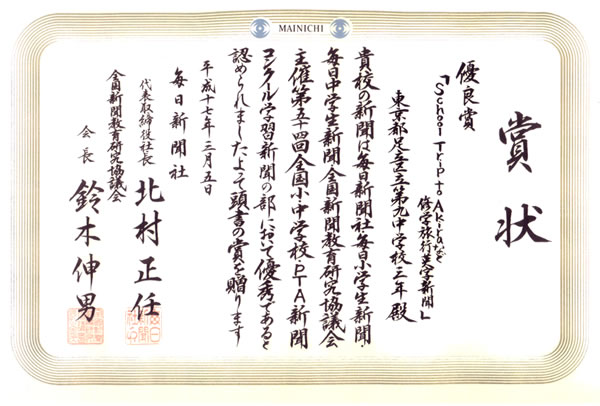 MAINICHI
賞状
優良賞
「School Trip to Akitaなど
修学旅行英字新聞」
東京都足立区立第九中学校三年殿
貴校の新聞は毎日新聞社毎日小学生新聞・
毎日中学生新聞・全国新聞教育研究協議会
主催第五十四回全国小・中学校・PTA新聞
コンクール学習新聞の部において優秀であると
認められましたよって頭書の賞を贈ります
平成十七年三月五日
毎日新聞社
代表取締役社長 北村正任
全国新聞教育研究協議会
会長 鈴木伸男